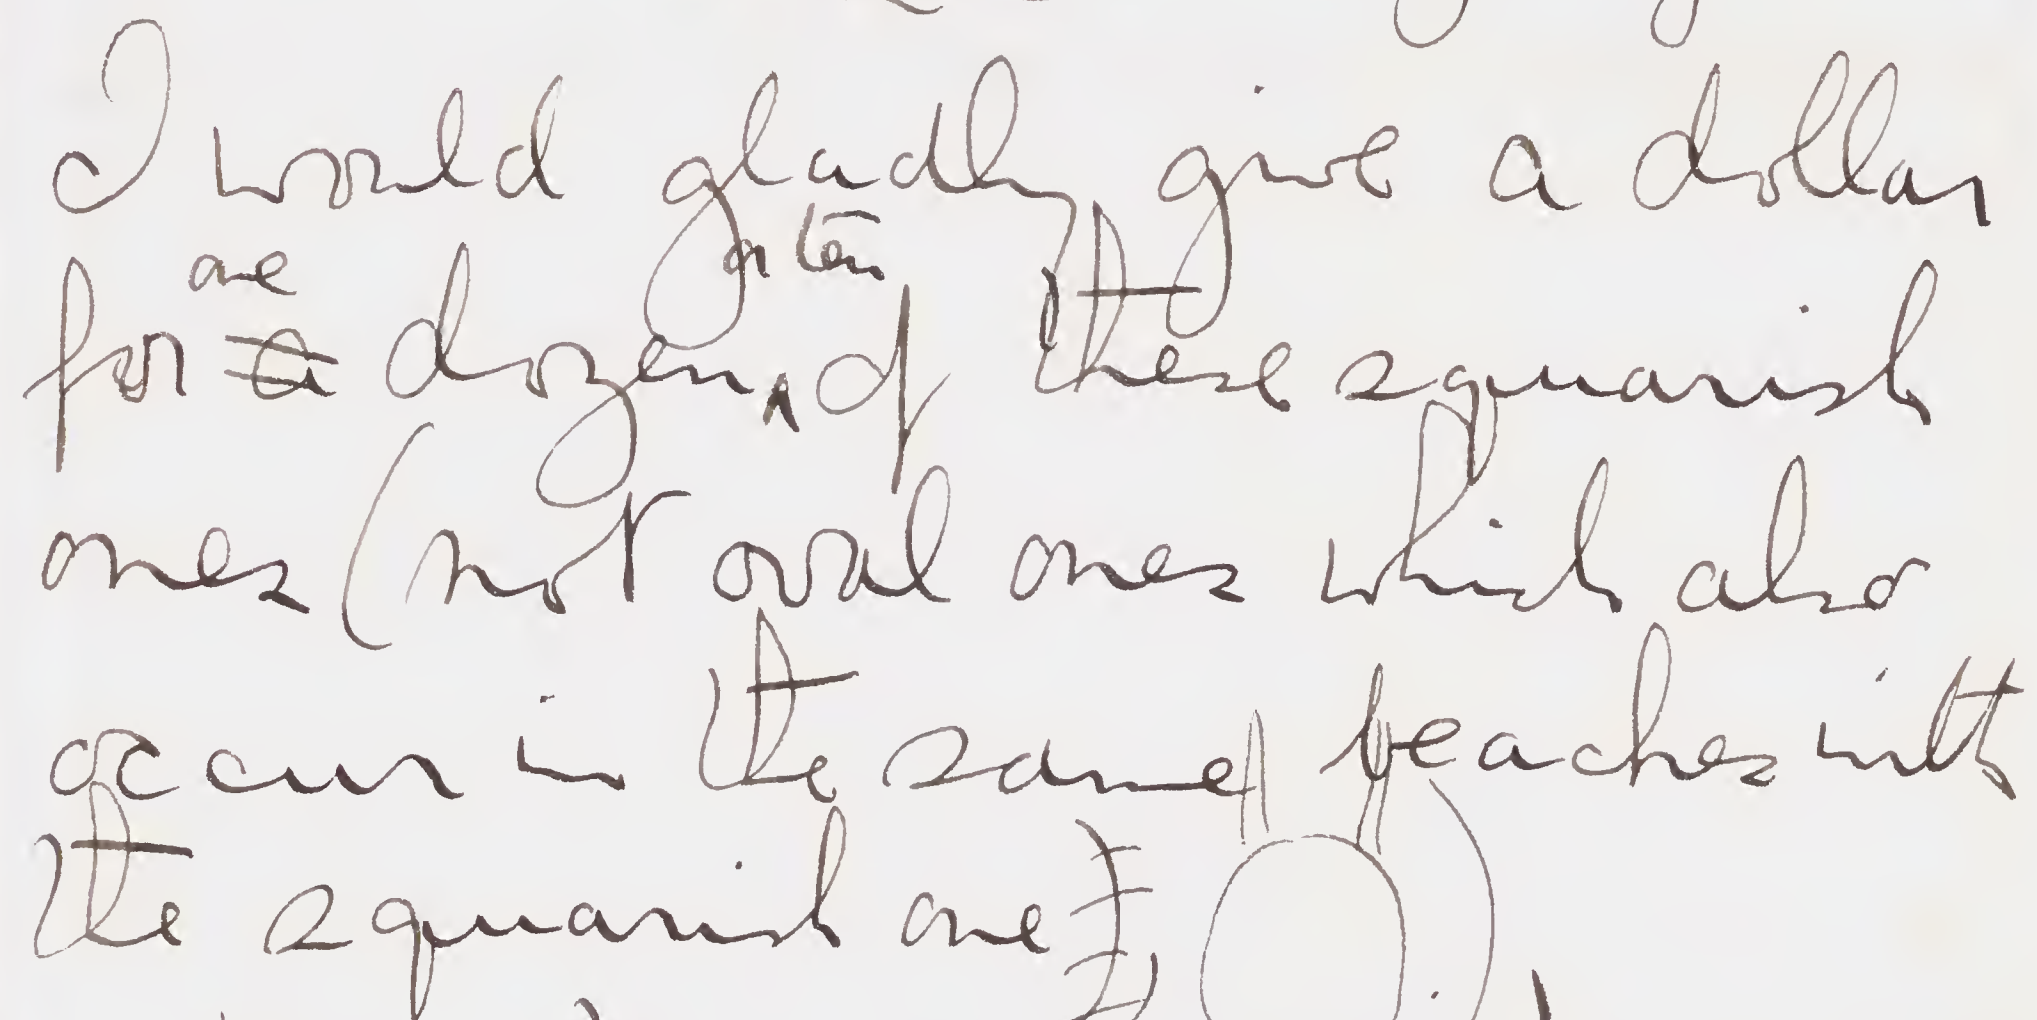 I would gladly give a dollar
one or ten
for a dozen of these squarish
ones (not oval ones which also
occur in the same beaches with
the squarish one)